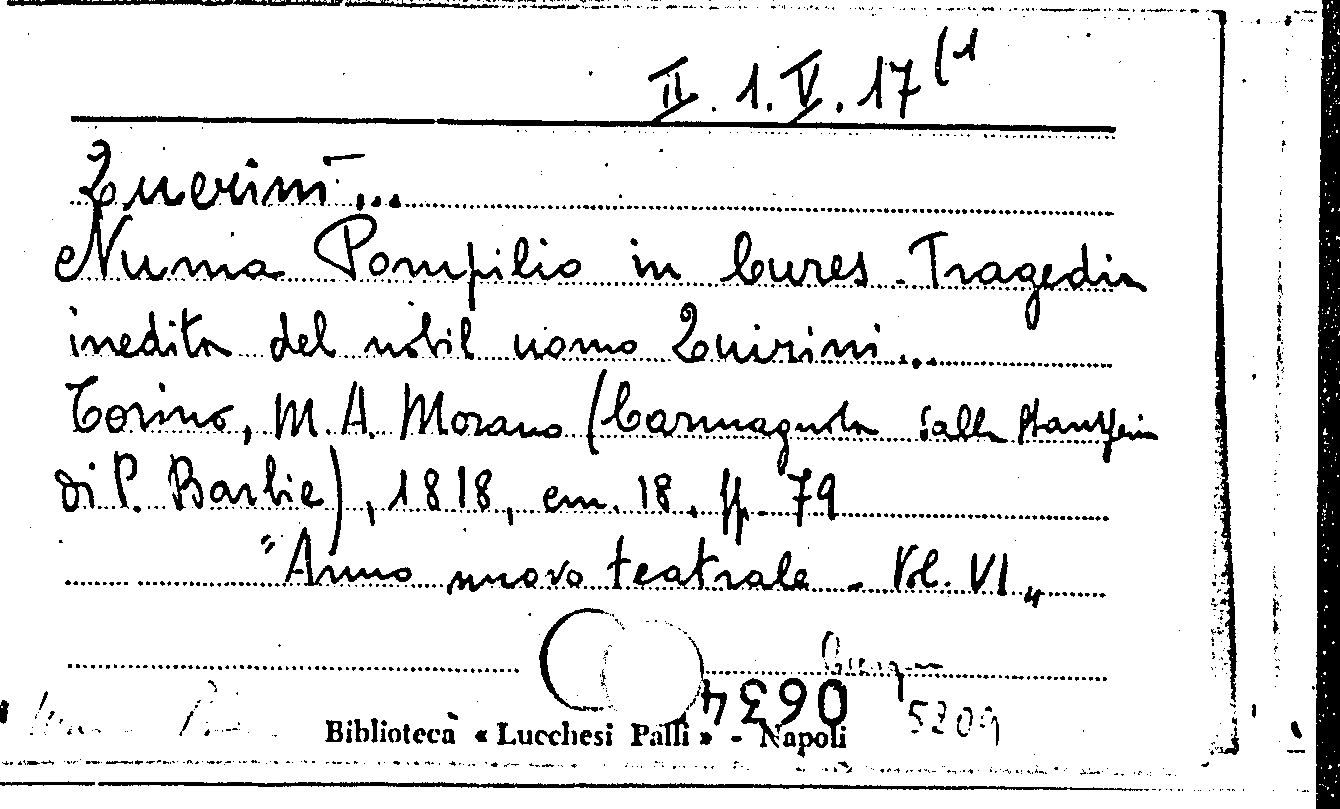 II. 1. V. 17 (1
Querini...
Numa Pompilio in Cures. Tragedia
inedita del nobil uomo Quirini...
Torino, M. A. Morano (Carmagnola dalla Stamperia
di P. Barbie), 1818, em. 18. pp. 79
"Anno nuovo teatrale - Vol. VI„
0634
5209
Biblioteca « Lucchesi Palli » - Napoli